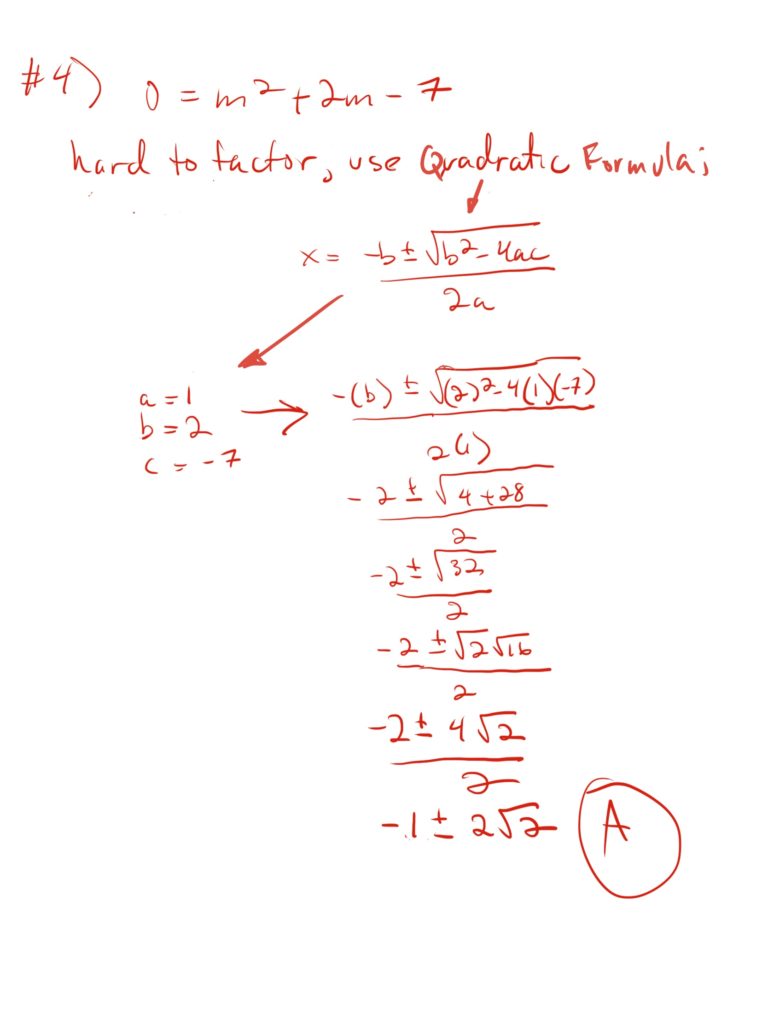 #4) 0 = m² + 2m - 7
hard to factor, use Quadratic Formula;
x = -b ± √b² - 4ac
2a
a = 1
b = 2
c = -7
-(b) ± √(2)² - 4(1)(-7)
2(1)
-2 ± √4 + 28
2
-2 ± √32
2
-2 ± √2√16
2
-2 ± 4√2
2
-1 ± 2√2 A